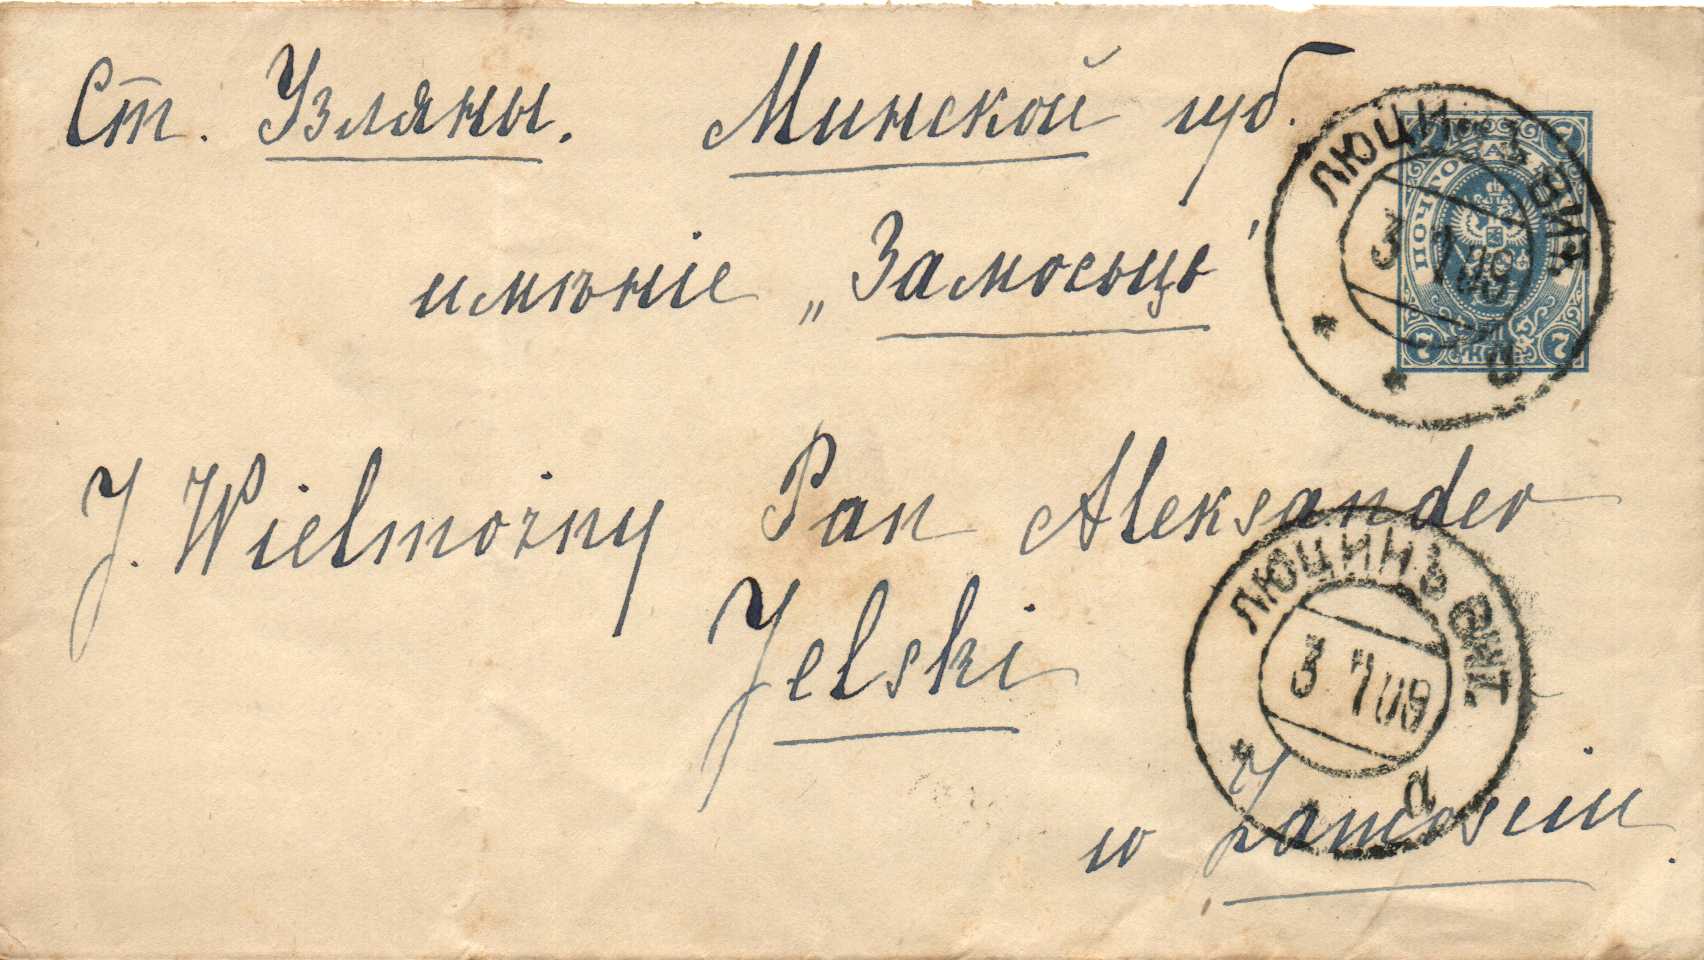 Ст. Узляны. Минской губ.
имѣніе „Замосьць"
J. Wielmożny Pan Aleksander
Jelski
w Zamościu.
ЛЮЦИНЪ ВИТ.
3 7 09
а
ЛЮЦИНЪ ВИТ.
3 7 09
а
ПОЧТОВАЯ
7 КОП. 7
7 7